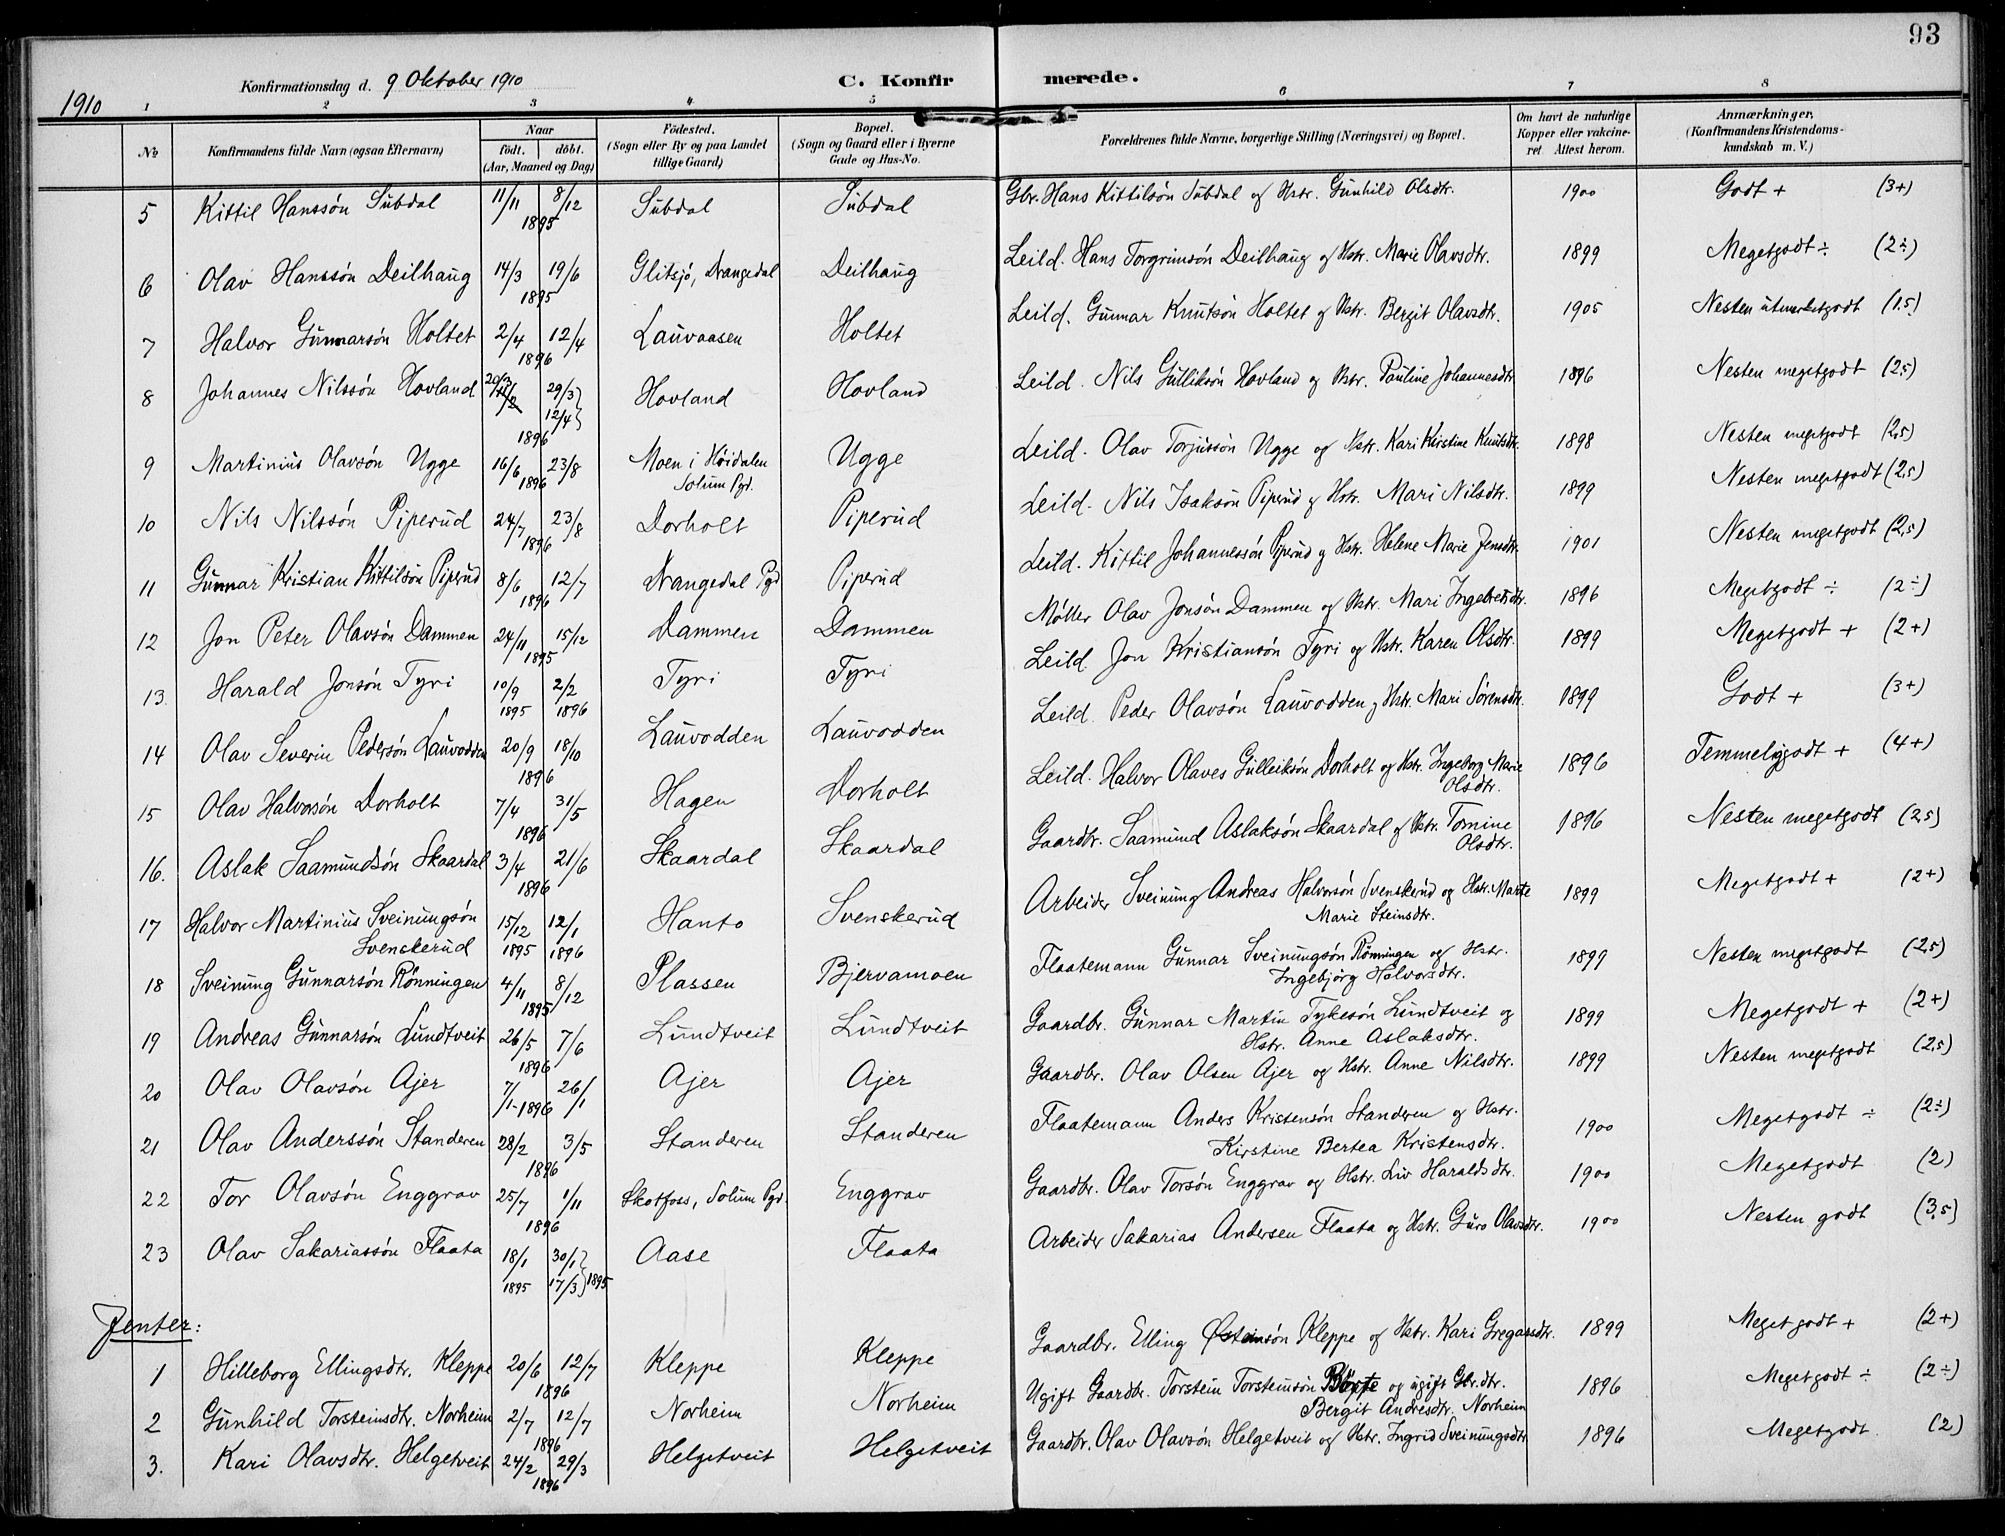 93
1910
Konfirmationsdag d. 9 Oktober 1910
C. Konfirmerede.
1 2 3 4 5 6 7 8
№
Konfirmandens fulde Navn (ogsaa Efternavn)
Naar
født. døbt.
(Aar, Maaned og Dag)
Födested.
(Sogn eller By og paa Landet
tillige Gaard)
Bopæl.
(Sogn og Gaard eller i Byerne
Gade og Hus-No.
Forældrenes fulde Navne, borgerlige Stilling (Næringsvei) og Bopæl.
Om havt de naturlige
Kopper eller vakcine-
ret Attest herom.
Anmærkninger,
(Konfirmandens Kristendoms-
kundskab m. V.)
5 Kittil Hanssøn Subdal 11/11 8/12 1895 Subdal Subdal Gbr. Hans Kittilsøn Subdal og Hstr. Gunhild Olsdtr. 1900 Godt + (3+)
6 Olav Hanssøn Deilhaug 14/3 19/6 1895 Glitsjø, Drangedal Deilhaug Leild. Hans Torgrimsøn Deilhaug og Hstr. Marie Olavsdtr. 1899 Megetgodt ÷ (2÷)
7 Halvor Gunnarsøn Holtet 2/4 12/4 1896 Lauvaasen Holtet Leild. Gunnar Knutsøn Holtet og Hstr. Bergit Olavsdtr. 1905 Nesten utmerketgodt (1.5)
8 Johannes Nilssøn Hovland 29/3 12/4 1896 Hovland Hovland Leild. Nils Gulliksøn Hovland og Hstr. Pauline Johannesdtr. 1896 Nesten megetgodt (2.5)
9 Martinius Olavsøn Ugge 16/6 23/8 1896 Moen i Høidalen
Solum Pgd. Ugge Leild. Olav Torjussøn Ugge og Hstr. Kari Kirstine Knutsdtr. 1898 Nesten megetgodt (2,5)
10 Nils Nilssøn Piperud 24/7 23/8 1896 Dorholt Piperud Leild. Nils Isaksøn Piperud og Hstr. Mari Nilsdtr. 1899 Nesten megetgodt (2,5)
11 Gunnar Kristian Kittilsøn Piperud 8/6 12/7 1896 Drangedal Pgd Piperud Leild. Kittil Johannessøn Piperud og Hstr. Helene Marie Jensdtr. 1901 Nesten megetgodt (2,5)
12 Jon Peter Olavsøn Dammen 24/11 15/12 1895 Dammen Dammen Møller Olav Jonsøn Dammen og Hstr. Mari Ingebretsdtr. 1896 Megetgodt ÷ (2÷)
13. Harald Jonsøn Tyri 10/9 1895 2/2 1896 Tyri Tyri Leild. Jon Kristiansøn Tyri og Hstr. Karen Olsdtr. 1899 Megetgodt + (2+)
14 Olav Severin Pedersøn Lauvodden 20/9 18/10 1896 Lauvodden Lauvodden Leild. Peder Olavsøn Lauvodden og Hstr. Mari Sørensdtr. 1899 Godt + (3+)
15 Olav Halvorsøn Dorholt 7/4 31/5 1896 Hagen Dorholt Leild. Halvor Olaves Gulleiksøn Dorholt og Hstr. Ingeborg Marie
Olsdtr. 1896 Temmeliggodt + (4+)
16. Aslak Saamundsøn Skaardal 3/4 21/6 1896 Skaardal Skaardal Gaardbr. Saamund Aslaksøn Skaardal og Hstr. Tomine
Olsdtr. 1896 Nesten megetgodt (2.5)
17 Halvor Martinius Sveinungsøn
Svenskerud 15/12 1895 12/1 1896 Hanto Svenskerud Arbeider Sveinung Andreas Halvorsøn Svenskerud og Hstr. Marte
Marie Steinsdtr. 1899 Megetgodt + (2+)
18 Sveinung Gunnarsøn Rønningen 4/11 8/12 1895 Plassen Bjervamoen Flaatemann Gunnar Sveinungsøn Rønningen og Hstr.
Ingebjørg Halvorsdtr. 1899 Nesten megetgodt (2,5)
19 Andreas Gunnarsøn Lundtveit 26/5 7/6 1896 Lundtveit Lundtveit Gaardbr. Gunnar Martin Tykesøn Lundtveit og
Hstr. Anne Aslaksdtr. 1899 Megetgodt + (2+)
20 Olav Olavsøn Ajer 7/1 - 1896 26/1 Ajer Ajer Gaardbr. Olav Olsen Ajer og Hstr. Anne Nilsdtr. 1899 Nesten megetgodt (2.5)
21 Olav Anderssøn Standeren 28/2 3/5 1896 Standeren Standeren Flaatemann Anders Kristensøn Standeren og Hstr.
Kirstine Bertea Kristensdtr. 1900 Megetgodt ÷ (2÷)
22 Tor Olavsøn Enggrav 25/7 1/11 1896 Skotfoss, Solum Pgd. Enggrav Gaardbr. Olav Torsøn Enggrav og Hstr. Liv Haraldsdtr. 1900 Megetgodt (2)
23 Olav Sakariassøn Flaata 18/1 1895 30/1 17/3 1895 Aase Flaata Arbeider Sakarias Andersen Flaata og Hstr. Guro Olavsdtr. 1900 Nesten godt (3,5)
Jenter:
1 Hilleborg Ellingsdtr. Kleppe 20/6 12/7 1896 Kleppe Kleppe Gaardbr. Elling Østeinsøn Kleppe og Hstr. Kari Gregarsdtr. 1899 Meget godt + (2+)
2 Gunhild Torsteinsdtr. Norheim 2/7 12/7 1896 Norheim Norheim Ugift Gaardbr. Torstein Torsteinsøn Børte og ugift Gbr.dtr.
Bergit Andresdtr. Norheim 1896 Megetgodt ÷ (2÷)
3. Kari Olavsdtr. Helgetveit 24/2 29/3 1896 Helgetveit Helgetveit Gaardbr. Olav Olavsøn Helgetveit og Hstr. Ingrid Sveinungsdtr 1896 Megetgodt (2)